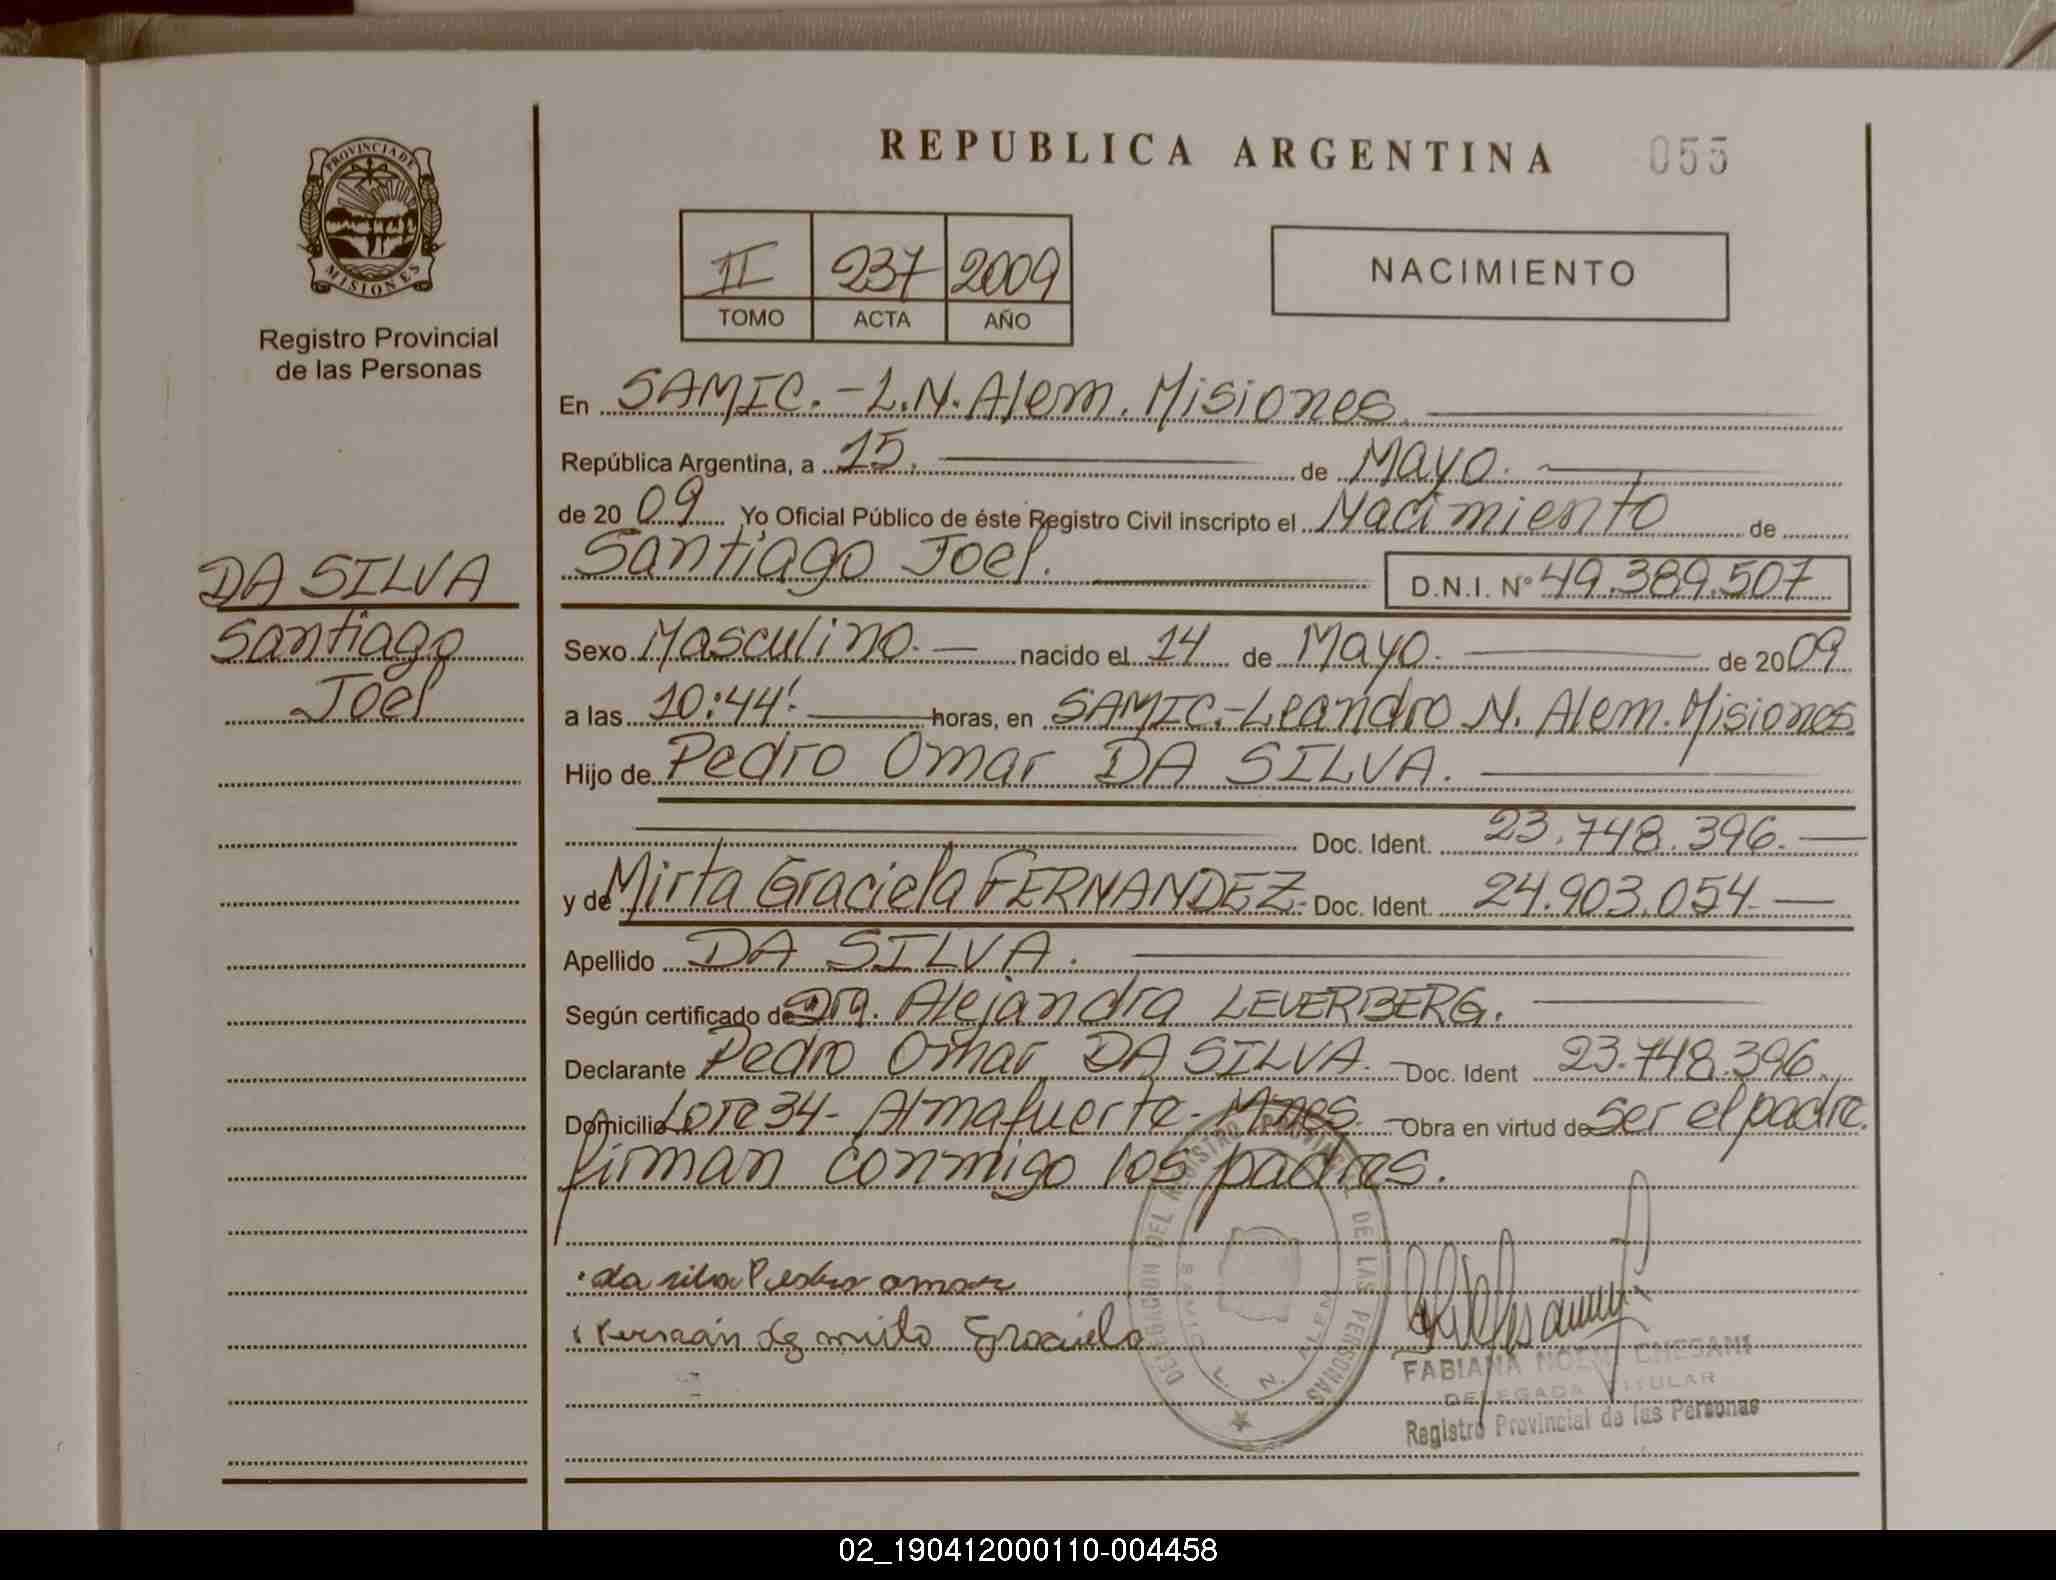 REPUBLICA ARGENTINA
055
PROVINCIA DE
MISIONES
Registro Provincial
de las Personas
II 237 2009
TOMO ACTA AÑO
NACIMIENTO
En SAMIC.-L.N.Alem. Misiones.
República Argentina, a 15. de Mayo.
de 2009 Yo Oficial Público de éste Registro Civil inscripto el Nacimiento de
Santiago Joel. D.N.I. Nº 49.389.507
DA SILVA
Santiago
Joel
Sexo Masculino. nacido el 14 de Mayo. de 2009
a las 10:44' horas, en SAMIC.-Leandro N. Alem. Misiones
Hijo de Pedro Omar DA SILVA.
Doc. Ident. 23.748.396.
y de Mirta Graciela FERNANDEZ. Doc. Ident. 24.903.054
Apellido DA SILVA.
Según certificado de Dra. Alejandra LEVERBERG.
Declarante Pedro Omar DA SILVA. Doc. Ident 23.748.396.
Domicilio Lote 34- Almafuerte- Mnes. Obra en virtud de ser el padre.
firman conmigo los padres.
da silva Pedro omar
DELEGACION DEL REGISTRO PROVINCIAL DE LAS PERSONAS
SAMIC L. N. ALEM
FABIANA NOEMI CHESANI
DELEGADA TITULAR
Registro Provincial de las Personas
02_190412000110-004458